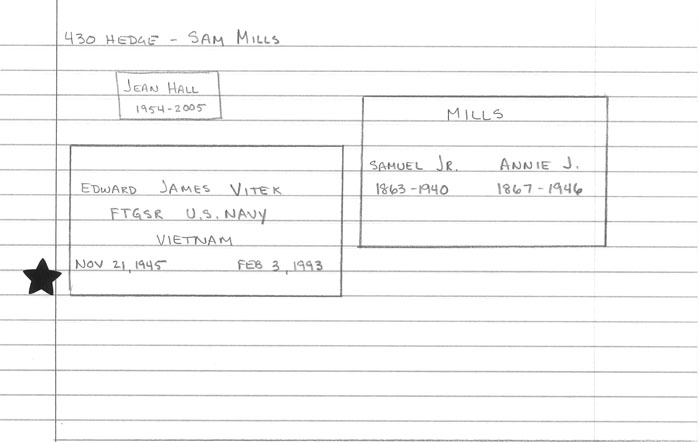 430 HEDGE - SAM MILLS
JEAN HALL
1954-2005
MILLS
SAMUEL JR. ANNIE J.
1863-1940 1867-1946
EDWARD JAMES VITEK
FTGSR U.S. NAVY
VIETNAM
NOV 21, 1945 FEB 3, 1993